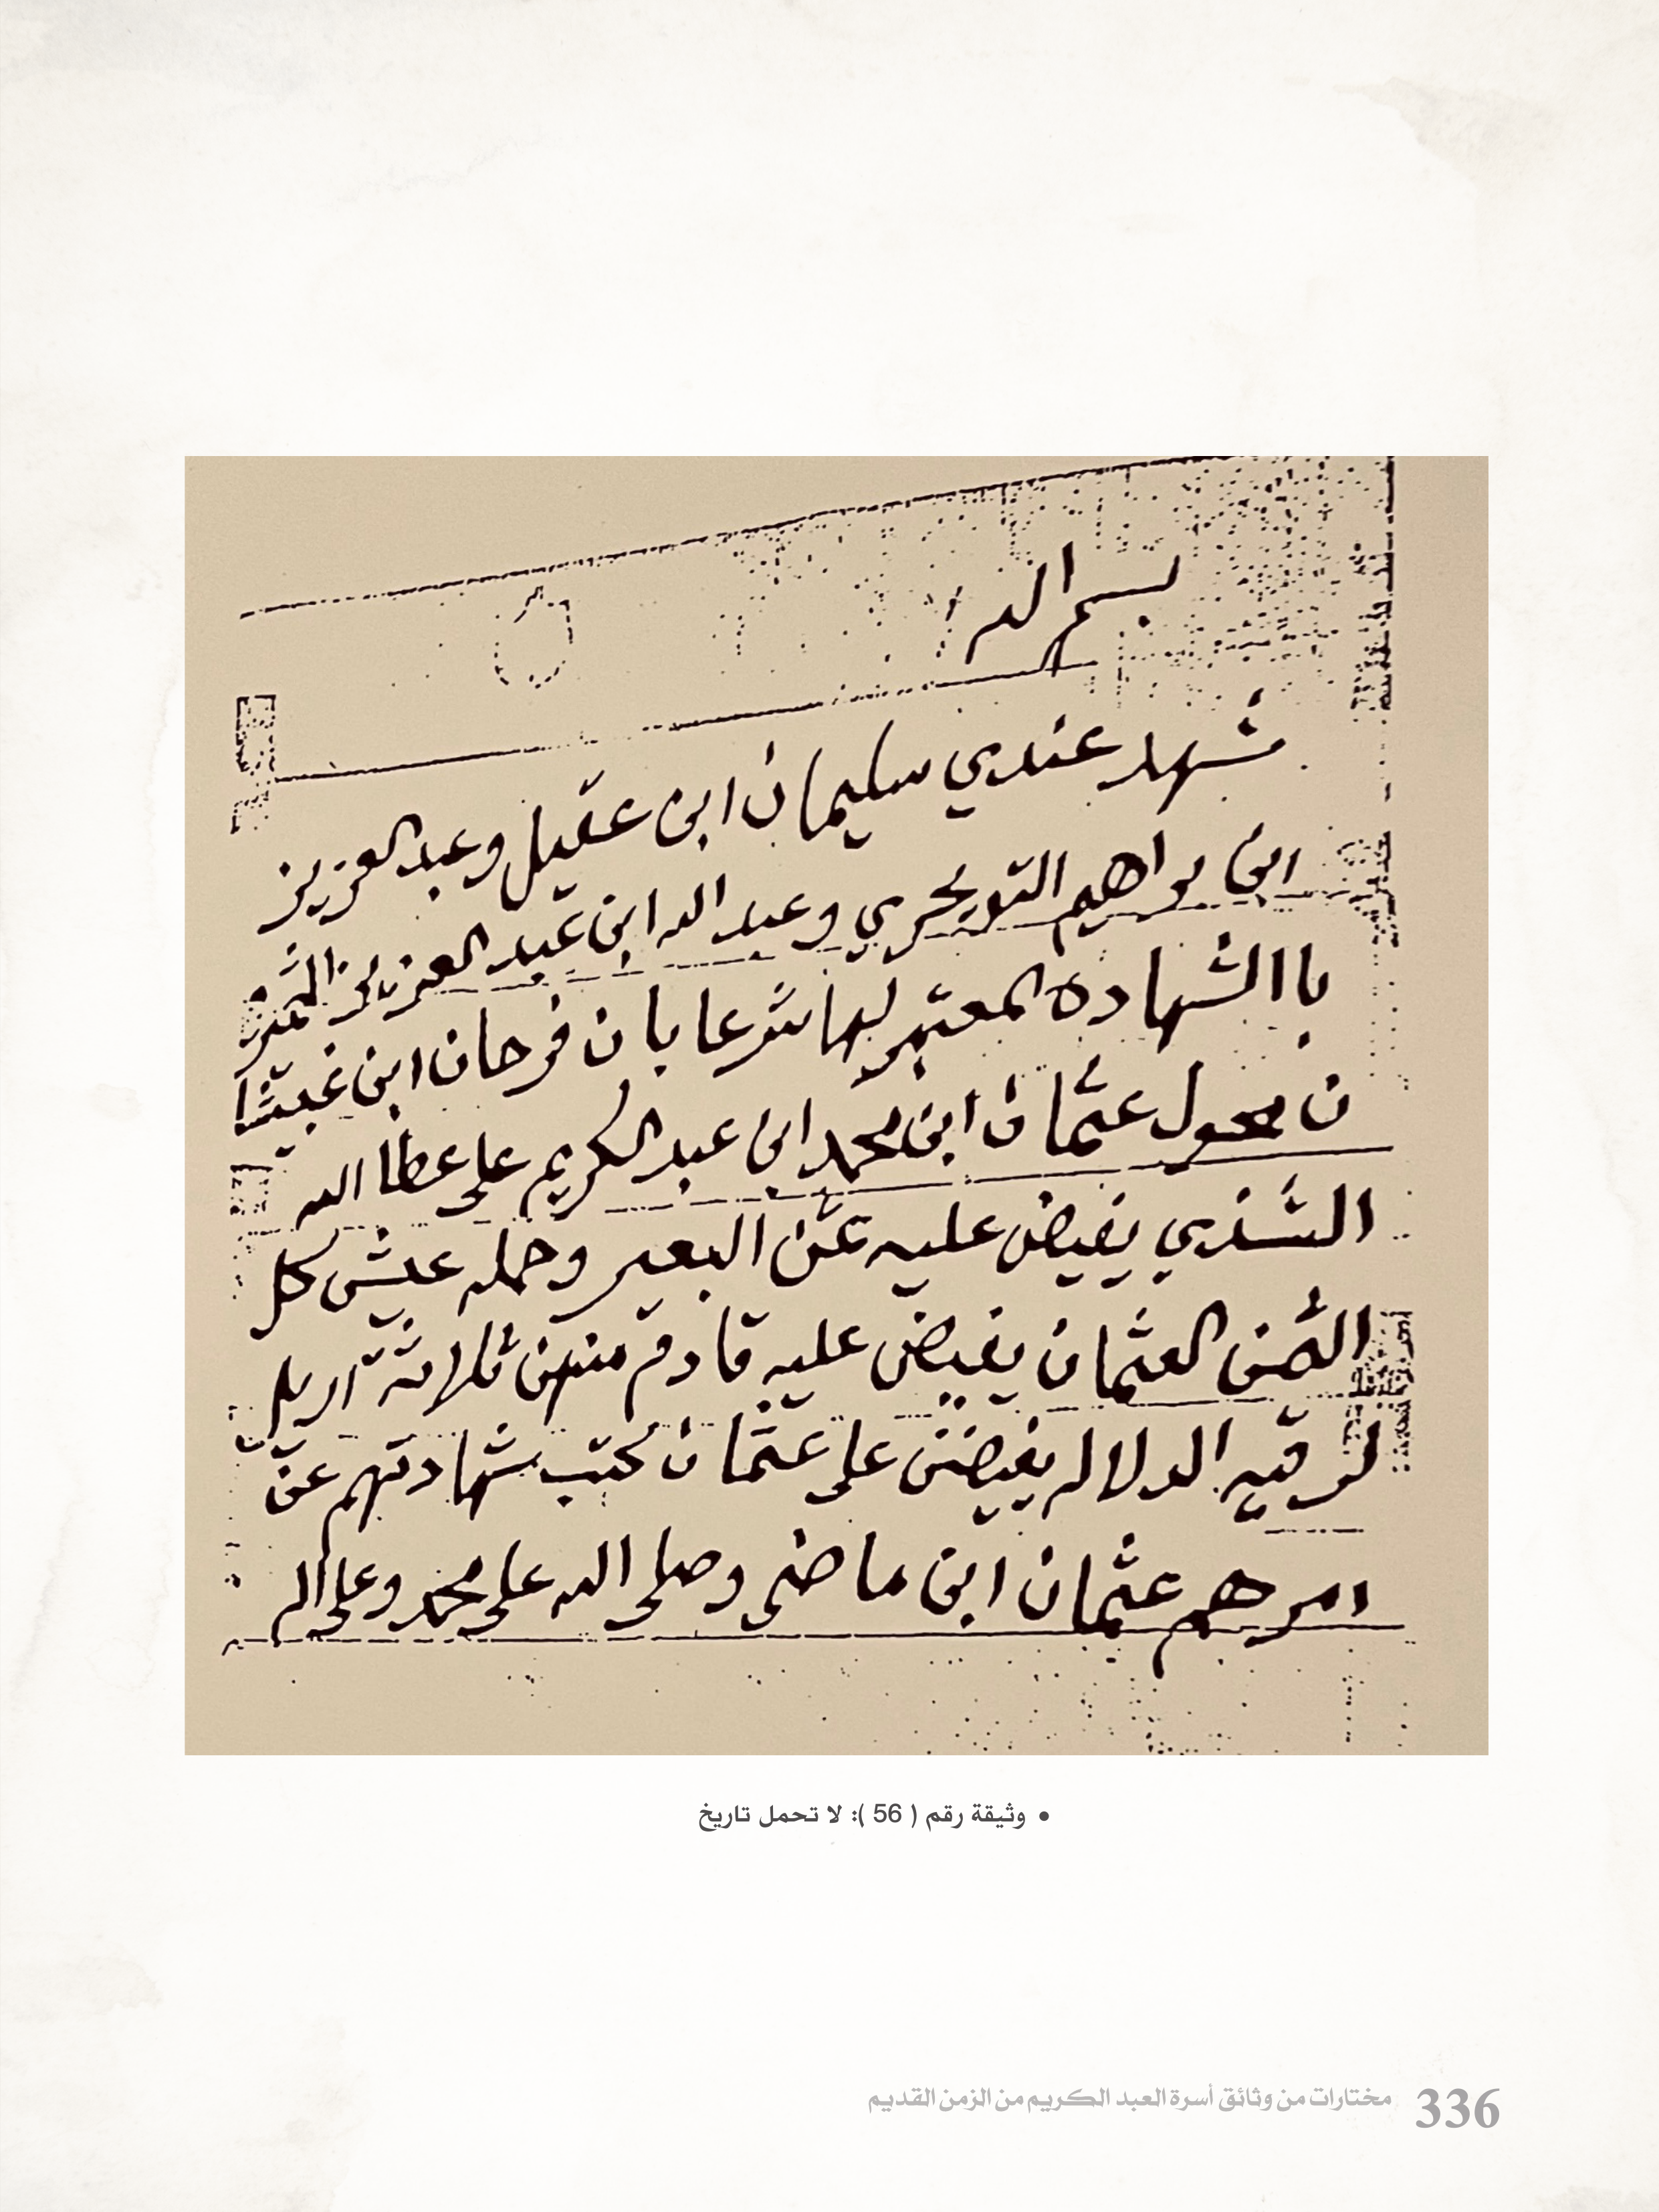 بسم الله
شهد عندي سليمان ابن عقيل وعبد العزيز
ابن براهيم التويجري وعبد الله ابن عبد العزيز
با الشهاده المعتبر لها شرعا بان فرحان ابن غيشا
ن محول عثمان ابن محمد ابن عبد الكريم على عطا الله
الشذري يفيض عليه عن البعير وحمله عيش كل
الثمن العثمان يفيض عليه قادم منهن ثلاثة اريل
لرقيه الدلاله يفيضن على عثمان كتب شهادتهم عن
امرهم عثمان ابن ماضي وصلى الله على محمد وعلى اله
• وثيقة رقم ( 56 ): لا تحمل تاريخ
336 مختارات من وثائق أسرة العبد الكريم من الزمن القديم